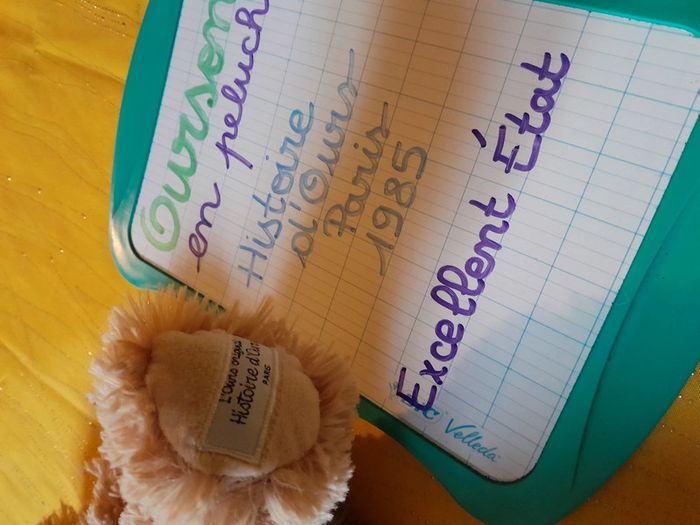 Ourson
en peluch
Histoire
d'Ours
Paris
1985
Excellent État
Velleda
L'Ours original
Histoire d'Ours
PARIS